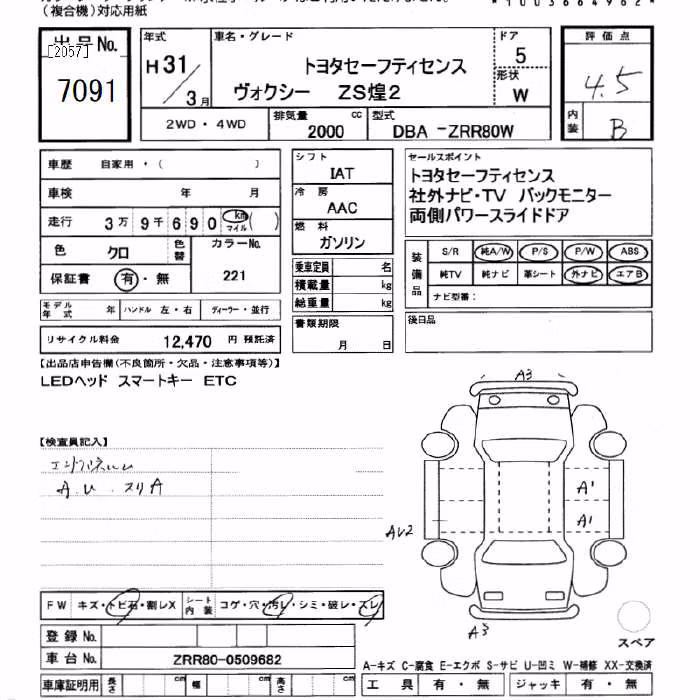 (複合機)対応用紙
*1003664962*
出品No.
[2057]
7091
年式
H 31 / 3月
車名・グレード
トヨタセーフティセンス
ヴォクシー ZS煌2
ドア
5
形状
W
評価点
4.5
内装
B
2WD・4WD
排気量
2000 cc
型式
DBA -ZRR80W
車歴 自家用・( )
車検 年 月
走行 3万 9千 6 9 0 km マイル ( )
色 クロ
色替
カラーNo.
221
保証書 有・無
モデル年式 年
ハンドル 左・右
ディーラー・並行
リサイクル料金 12,470 円 預託済
シフト
IAT
冷房
AAC
燃料
ガソリン
乗車定員 名
積載量 kg
給重量 kg
書類期限
月 日
セールスポイント
トヨタセーフティセンス
社外ナビ・TV バックモニター
両側パワースライドドア
装備品
S/R 純A/W P/S P/W ABS
純TV 純ナビ 革シート 外ナビ エアB
ナビ型番:
後日品
【出品店申告欄(不良箇所・欠品・注意事項等)】
LEDヘッド スマートキー ETC
【検査員記入】
A.U スリA
A3
A1'
A1
AU2
A3
FW キズ・トビ石・割レX
シート内装 コゲ・穴・汚レ・シミ・破レ・スレ
登録No.
車台No. ZRR80-0509682
車庫証明用 長さ cm 幅 cm 高さ cm
スペア
A-キズ C-腐食 E-エクボ S-サビ U-凹ミ W-補修 XX-交換済
工具 有・無 ジャッキ 有・無